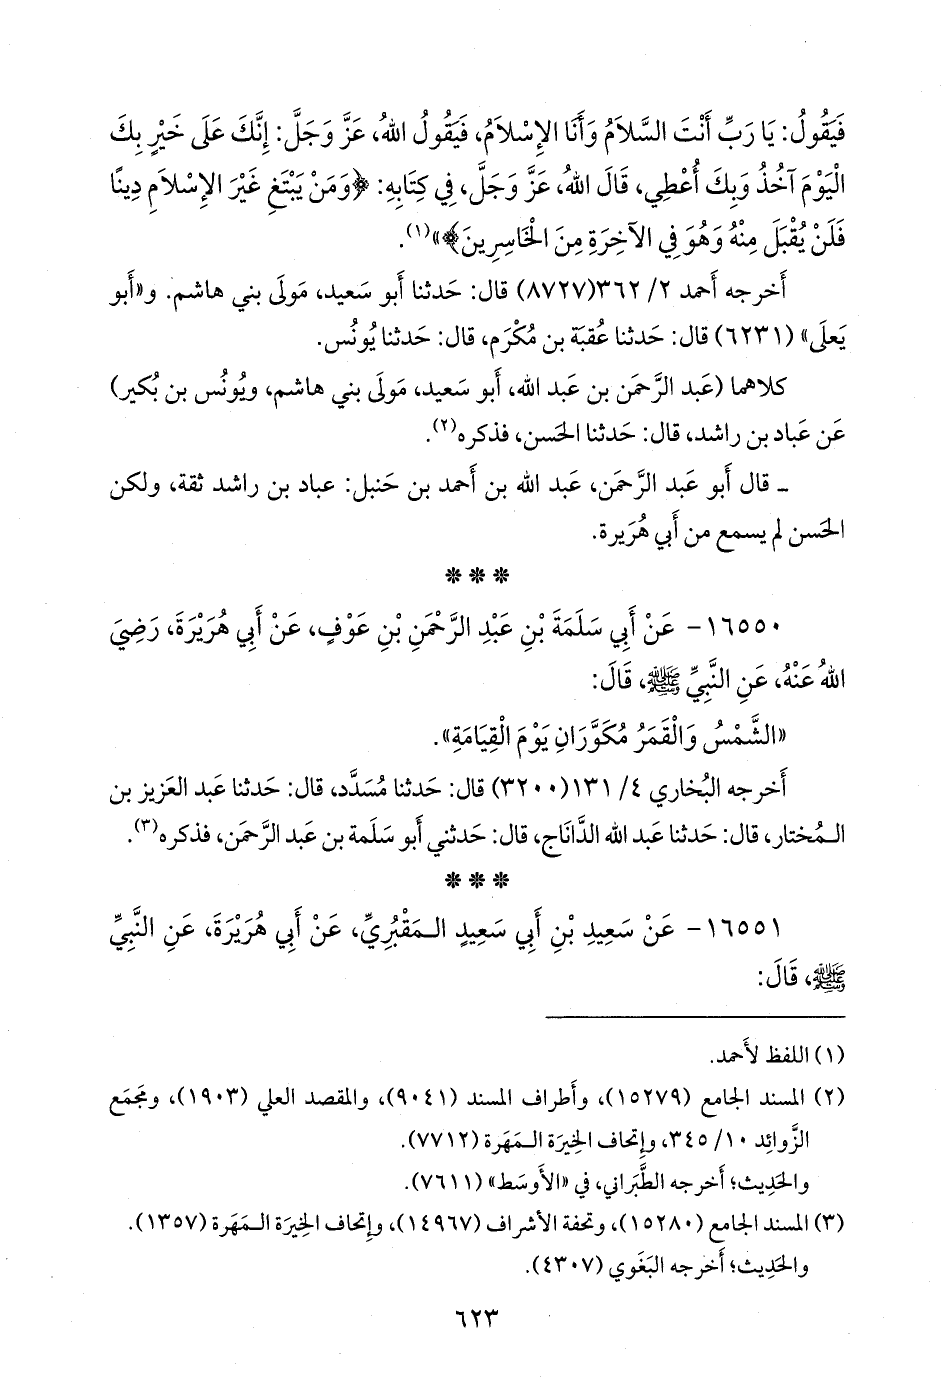 فَيَقُولُ: يَا رَبِّ أَنْتَ السَّلاَمُ وَأَنَا الإِسْلاَمُ، فَيَقُولُ اللهُ، عَزَّ وَجَلَّ: إِنَّكَ عَلَى خَيْرٍ بِكَ
الْيَوْمَ آخُذُ وَبِكَ أُعْطِي، قَالَ اللهُ، عَزَّ وَجَلَّ، فِي كِتَابِهِ: ﴿وَمَنْ يَبْتَغِ غَيْرَ الإِسْلاَمِ دِينًا
فَلَنْ يُقْبَلَ مِنْهُ وَهُوَ فِي الآخِرَةِ مِنَ الْخَاسِرِينَ﴾»(١).
أَخرجه أَحمد ٢/ ٣٦٢(٨٧٢٧) قال: حَدثنا أَبو سَعيد، مَولَى بني هاشم. و«أَبو
يَعلَى» (٦٢٣١) قال: حَدثنا عُقبَة بن مُكْرَم، قال: حَدثنا يُونُس.
كلاهما (عَبد الرَّحمَن بن عَبد الله، أَبو سَعيد، مَولَى بني هاشم، ويُونُس بن بُكير)
عَن عَباد بن راشد، قال: حَدثنا الحَسن، فذكره(٢).
ـ قال أَبو عَبد الرَّحمَن، عَبد الله بن أَحمد بن حَنبل: عباد بن راشد ثقة، ولكن
الحَسن لم يسمع من أَبي هُرَيرة.
* * *
١٦٥٥٠- عَنْ أَبِي سَلَمَةَ بْنِ عَبْدِ الرَّحْمَنِ بْنِ عَوْفٍ، عَنْ أَبِي هُرَيْرَةَ، رَضِيَ
اللهُ عَنْهُ، عَنِ النَّبِيِّ ﷺ، قَالَ:
«الشَّمْسُ وَالْقَمَرُ مُكَوَّرَانِ يَوْمَ الْقِيَامَةِ».
أَخرجه البُخاري ٤/ ١٣١(٣٢٠٠) قال: حَدثنا مُسَدَّد، قال: حَدثنا عَبد العَزيز بن
الـمُختار، قال: حَدثنا عَبد الله الدَّانَاج، قال: حَدثني أَبو سَلَمة بن عَبد الرَّحمَن، فذكره(٣).
* * *
١٦٥٥١- عَنْ سَعِيدِ بْنِ أَبِي سَعِيدٍ الـمَقْبُرِيِّ، عَنْ أَبِي هُرَيْرَةَ، عَنِ النَّبِيِّ
ﷺ، قَالَ:
(١) اللفظ لأَحمد.
(٢) المسند الجامع (١٥٢٧٩)، وأَطراف المسند (٩٠٤١)، والمقصد العلي (١٩٠٣)، ومَجمَع
الزَّوائِد ١٠/ ٣٤٥، وإِتحاف الخِيرَة الـمَهَرة (٧٧١٢).
والحَدِيث؛ أَخرجه الطَّبَراني، في «الأَوسَط» (٧٦١١).
(٣) المسند الجامع (١٥٢٨٠)، وتحفة الأشراف (١٤٩٦٧)، وإِتحاف الخِيرَة الـمَهَرة (١٣٥٧).
والحَدِيث؛ أَخرجه البَغَوي (٤٣٠٧).
٦٢٣